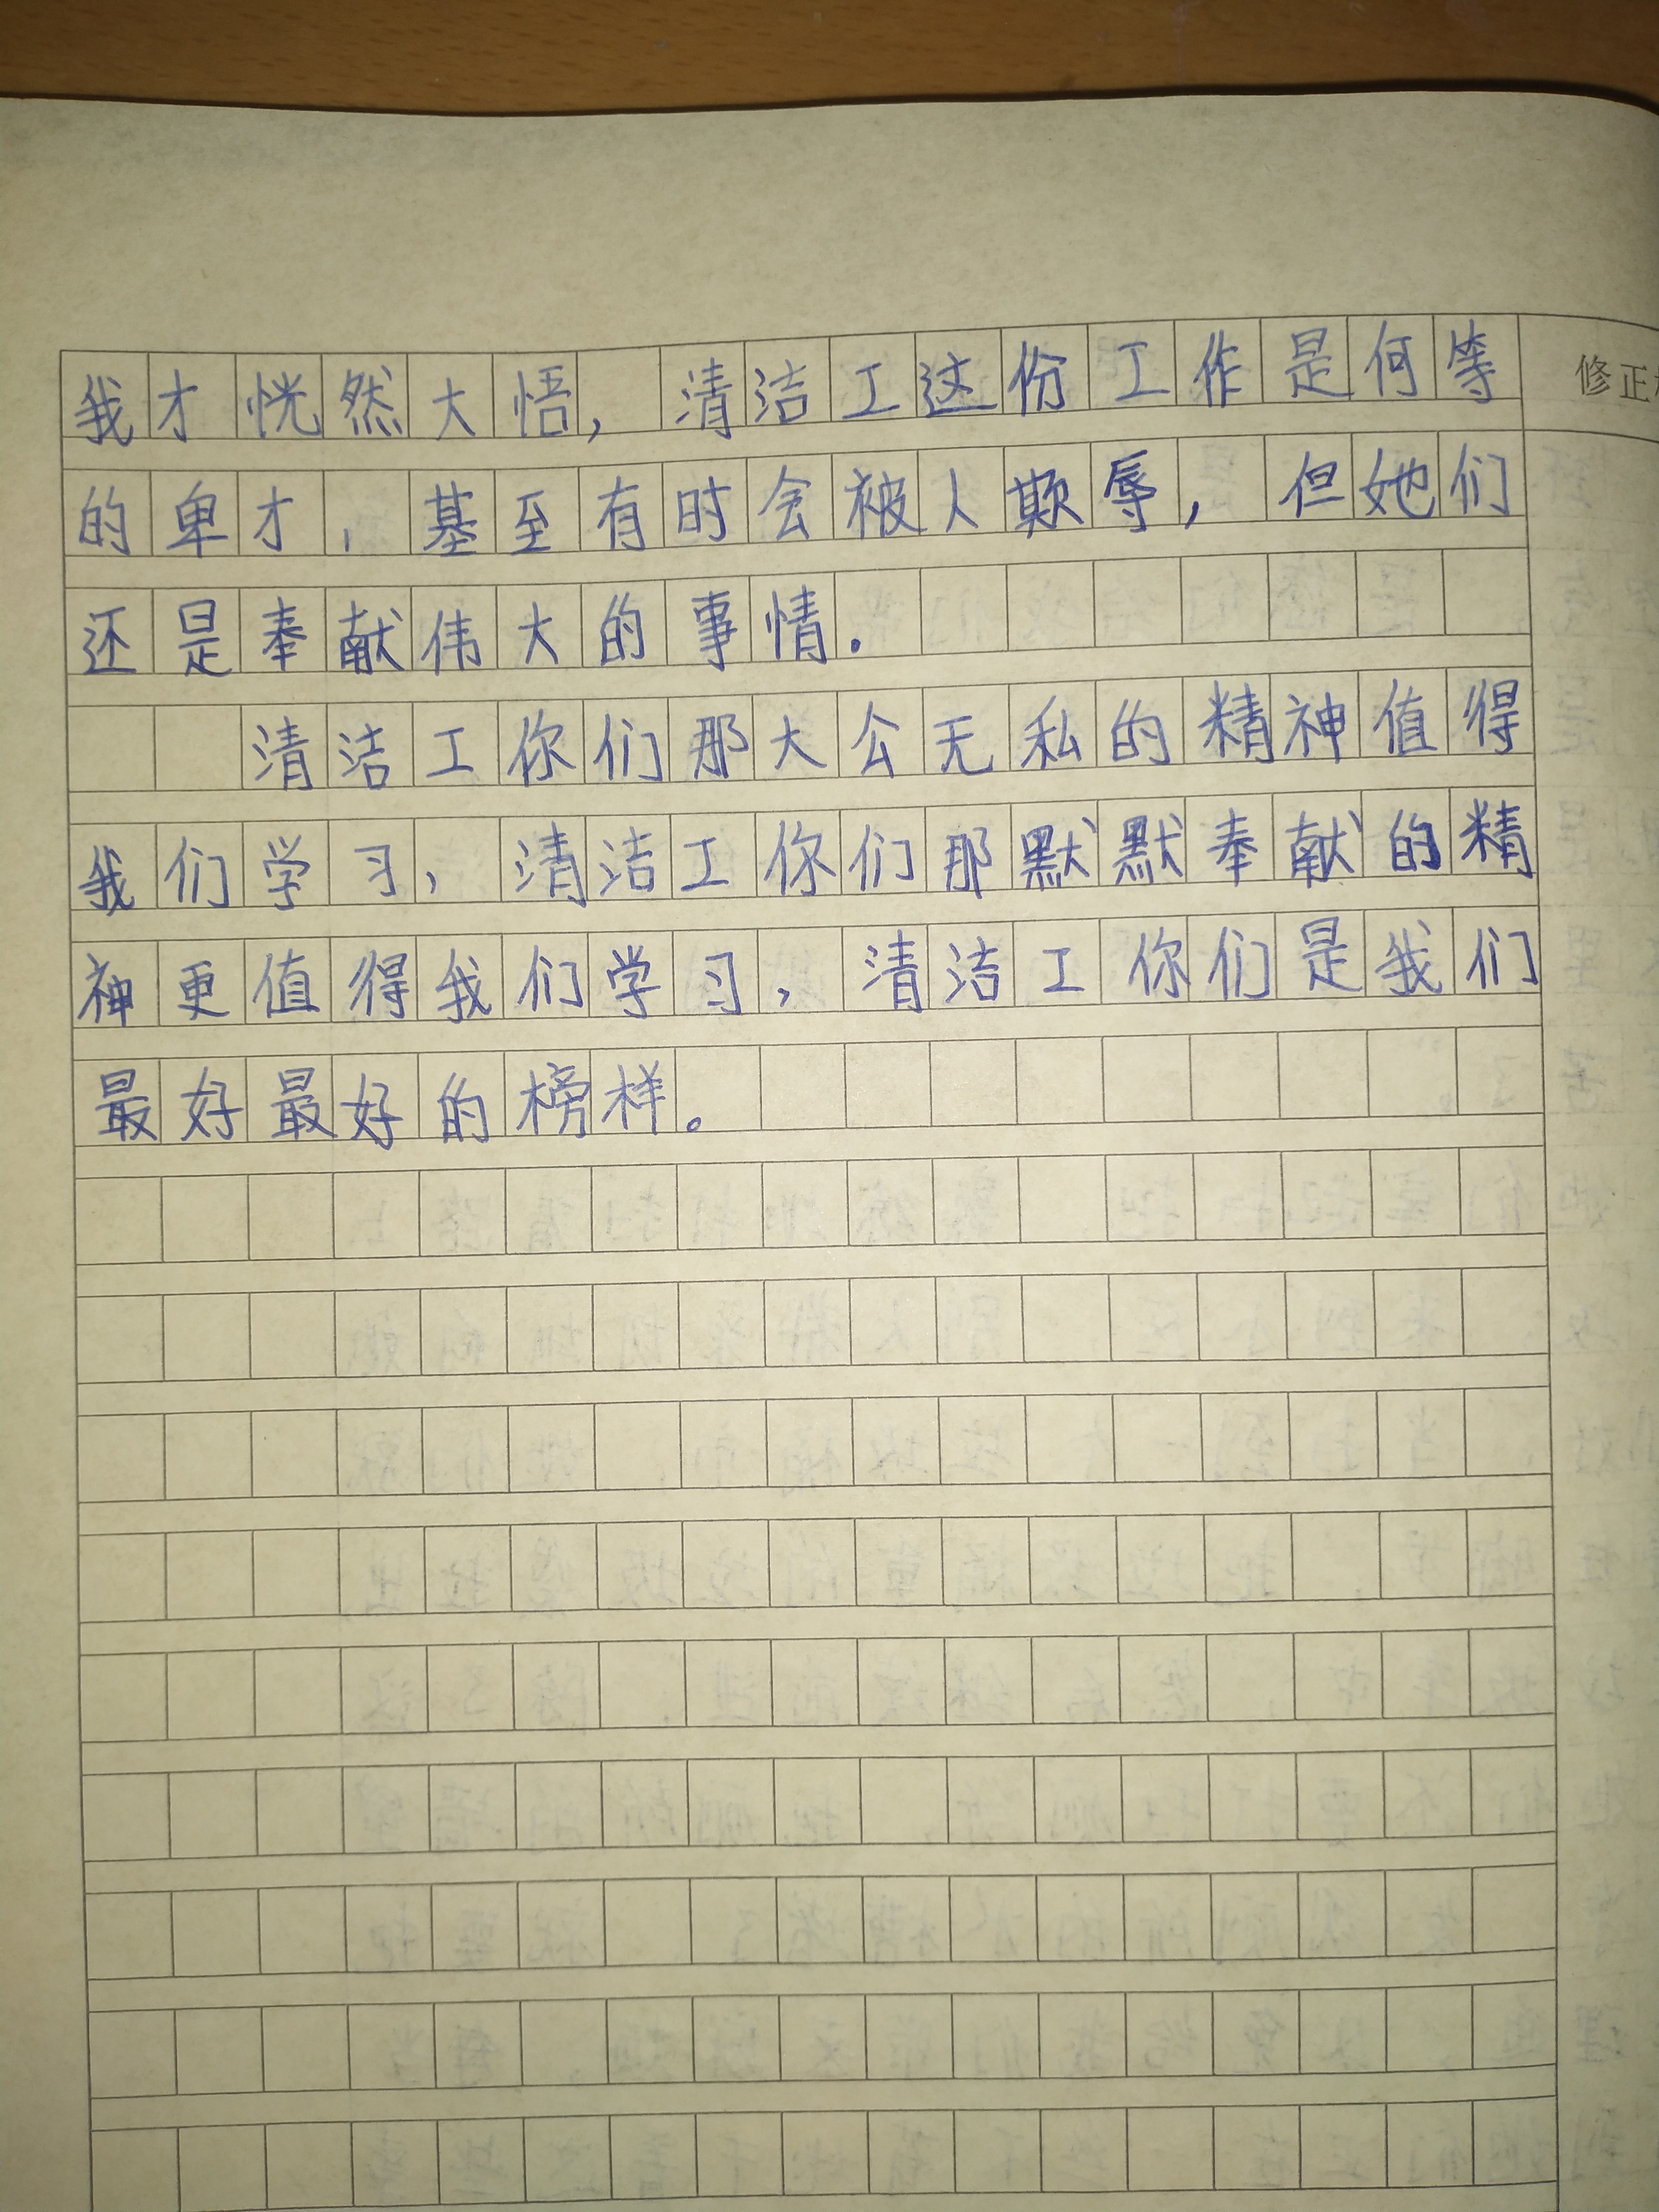 我才恍然大悟，清洁工这份工作是何等
的卑才，基至有时会被人欺辱，但她们
还是奉献伟大的事情.
清洁工你们那大公无私的精神值得
我们学习，清洁工你们那默默奉献的精
神更值得我们学习，清洁工你们是我们
最好最好的榜样。
修正